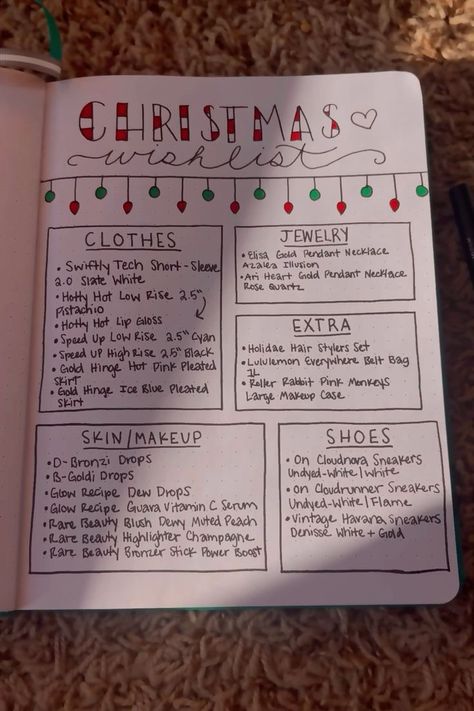 CHRISTMAS
wishlist
CLOTHES
• Swiftly Tech Short-Sleeve
2.0 Slate White
• Hotty Hot Low Rise 2.5"
Pistachio
• Hotty Hot Lip Gloss
• Speed Up Low Rise 2.5" Cyan
• Speed UP High Rise 2.5" Black
• Gold Hinge Hot Pink Pleated
Skirt
• Gold Hinge Ice Blue Pleated
Skirt
JEWELRY
• Elisa Gold Pendant Necklace
Azalea Illusion
• Ari Heart Gold Pendant Necklace
Rose Quartz
EXTRA
• Holidae Hair Stylers Set
• Lululemon Everywhere Belt Bag
1L
• Roller Rabbit Pink Monkeys
Large Makeup Case
SKIN/MAKEUP
• D-Bronzi Drops
• B-Goldi Drops
• Glow Recipe Dew Drops
• Glow Recipe Guava Vitamin C Serum
• Rare Beauty Blush Dewy Muted Peach
• Rare Beauty Highlighter Champagne
• Rare Beauty Bronzer Stick Power Boost
SHOES
• On Cloudnova Sneakers
Undyed-White|White
• On Cloudrunner Sneakers
Undyed-White|Flame
• Vintage Havana Sneakers
Denisse White + Gold